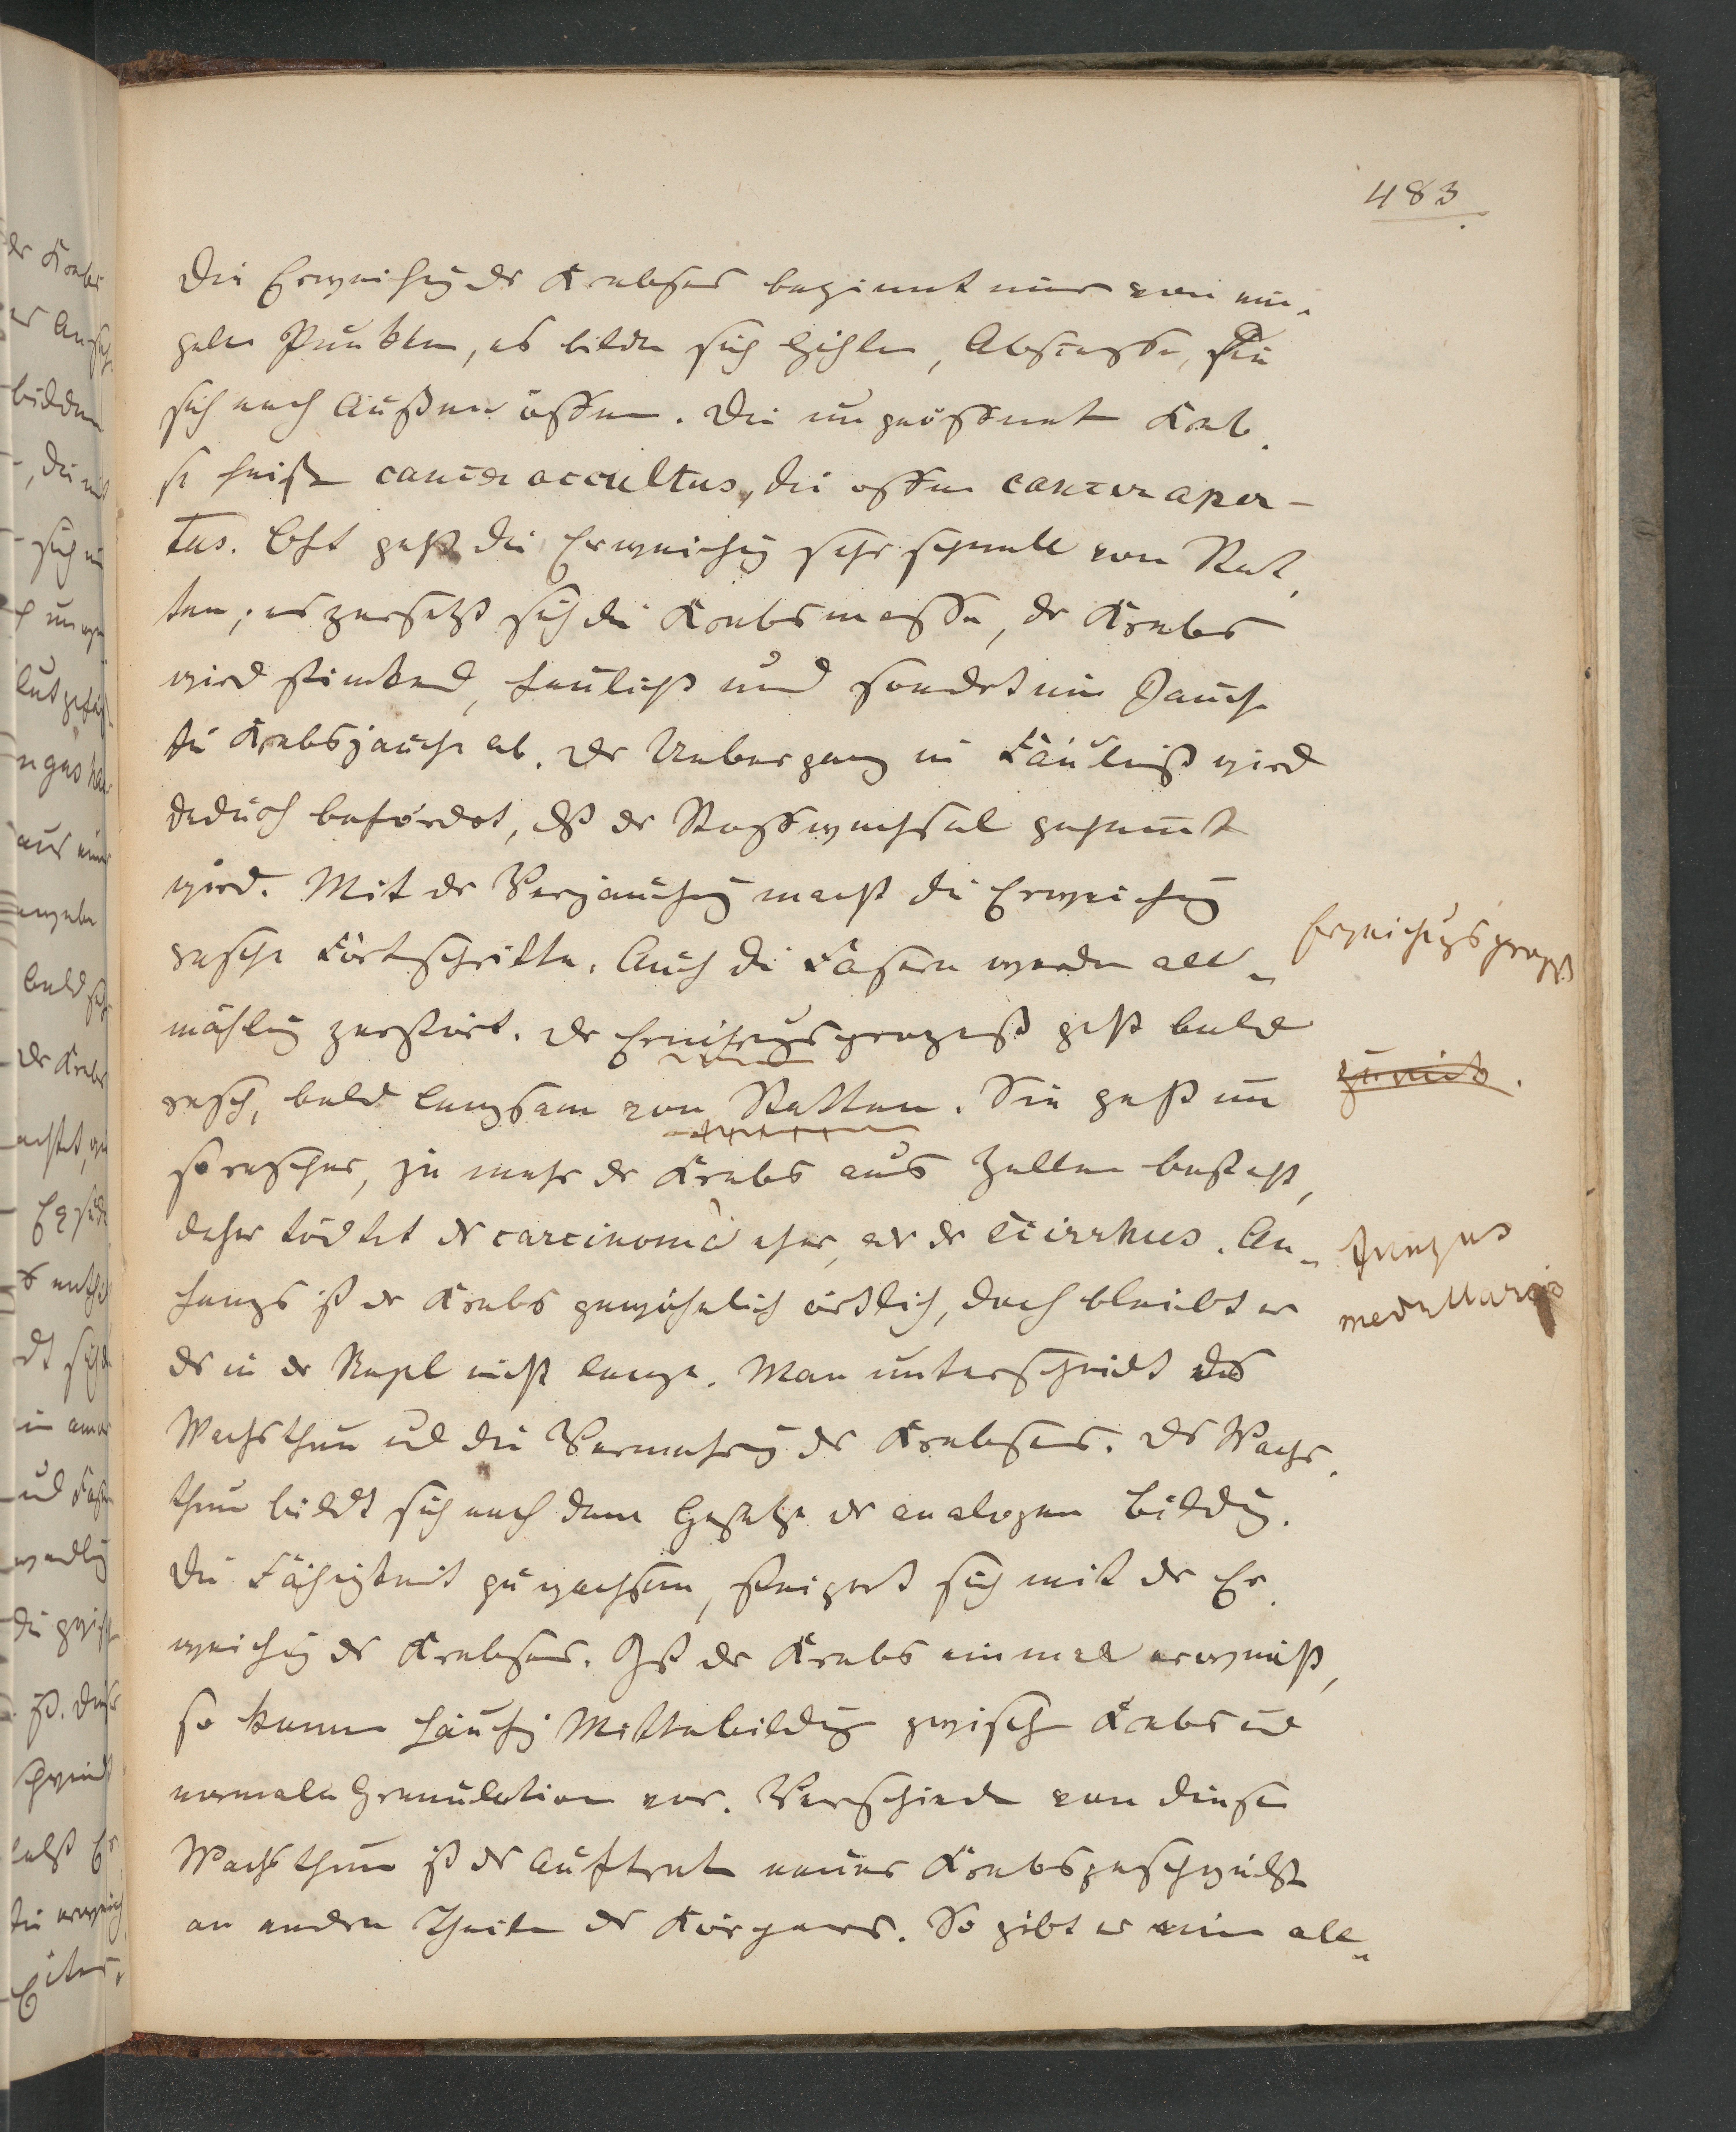 483
Die Erweichung des Krebses beginnt nur von ein-
zelen Punkten, es bilden sich Höhlen, Abscesse, die
sich nach Außen öffnen. Die ungeöffneten Kreb-
se heißen cancer occultus, die offenen cancer aper-
tus. Oft geht die Erweichung sehr schnell von Stat-
ten; es zersetzt sich die Krebsmasse, der Krebs
wird stinkend, faulicht und sondert eine Jauche
die Krebsjauche ab. Der Uebergang in Fäulniß wird
daduch befördert, dß der Stoffwechsel gehemmt
wird. Mit der Verjauchung macht die Erweichung
rasche Fortschritte. Auch die Fasern werden all-
mählig zerstört. Der Erweichungsprozeß geht bald
rasch, bald langsam von Statten. Sie geht um
so rascher, je mehr der Krebs aus Zellen besteht,
daher tödtet das carcinoma eher, als der Scirrhus. An-
fangs ist der Krebs gewöhnlich örtlich, doch bleibt er
es in der Regel nicht lange. Man unterscheidet das
Wachsthum und die Vermehrung des Krebses. Das Wachs-
thum bildet sich nach dem Gesetze der analogen Bildung.
Die Fähigkeit zu wachsen, steigert sich mit der Er-
weichung des Krebses. Ist der Krebs einmal erweicht,
so kommen häufig Mittelbildungen zwischen Krebs und
normaler Granulation vor. Verschieden von diesem
Wachsthum ist das Auftreten neuer Krebsgeschwülste
an andern Theilen des Körpers. So gibt es eine all-
Erweichungsprozeß
Fungus
medullaris